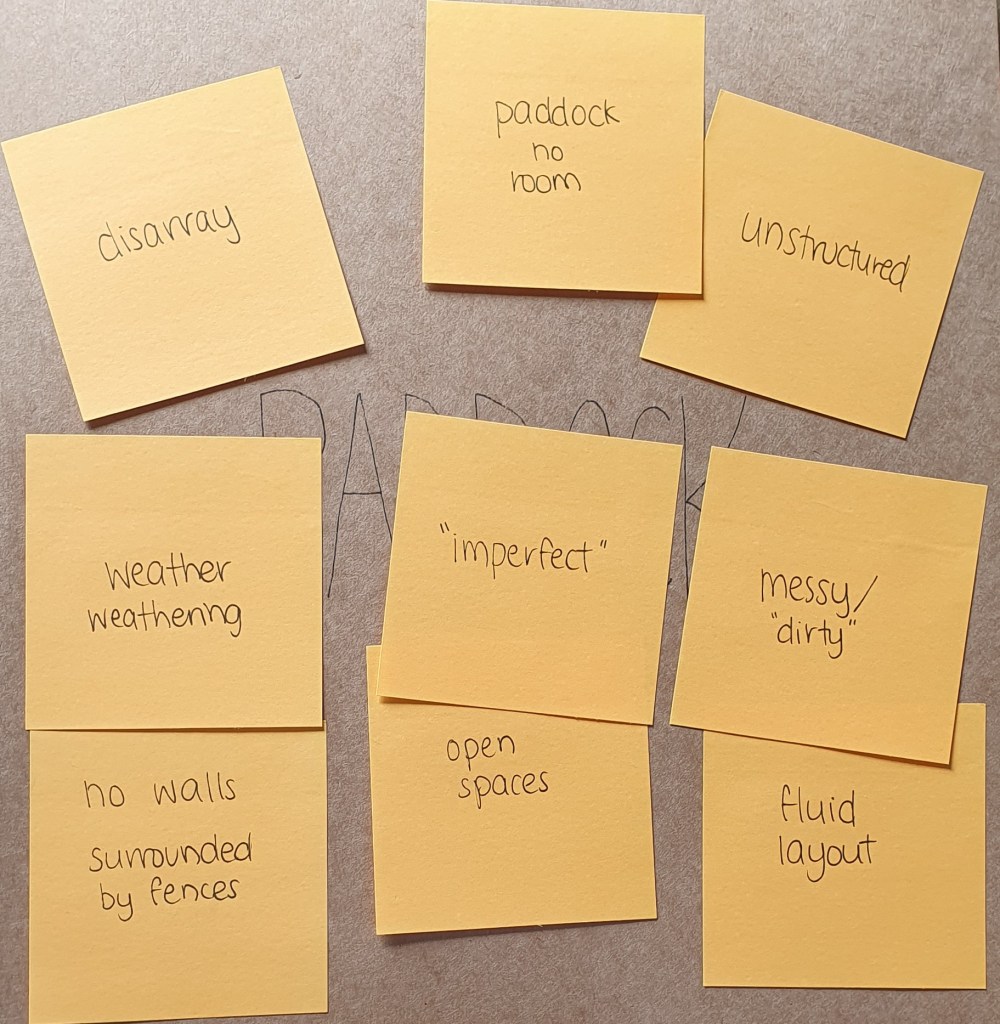 disarray
paddock
no
room
unstructured
PADDOCK
weather
weathering
"imperfect"
messy/
"dirty"
no walls
surrounded
by fences
open
spaces
fluid
layout